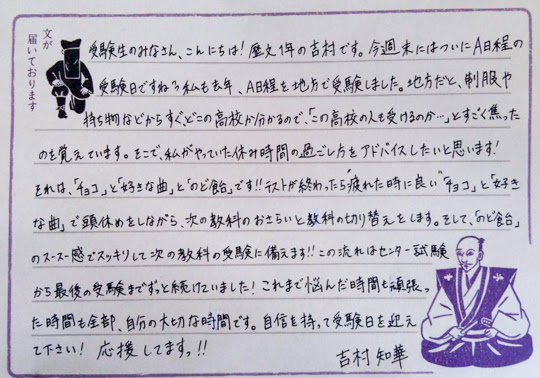 文が
届いております
受験生のみなさん、こんにちは！歴文1年の吉村です。今週末にはついにA日程の
受験日ですね！私も去年、A日程を地方で受験しました。地方だと、制服や
持ち物などからすぐ、どこの高校か分かるので、「この高校の人も受けるのか…」とすごく焦った
のを覚えています。そこで、私がやっていた休み時間の過ごし方をアドバイスしたいと思います！
それは、「チョコ」と「好きな曲」と「のど飴」です!!テストが終わったら"疲れた時に良い"「チョコ」と「好き
な曲」で頭休めをしながら、次の教科のおさらいと教科の切り替えをします。そして、「のど飴」
のスースー感でスッキリして次の教科の受験に備えます!!この流れはセンター試験
から最後の受験までずっと続けていました！これまで悩んだ時間も頑張っ
た時間も全部、自分の大切な時間です。自信を持って受験日を迎え
て下さい！応援してますっ!!
吉村 知華